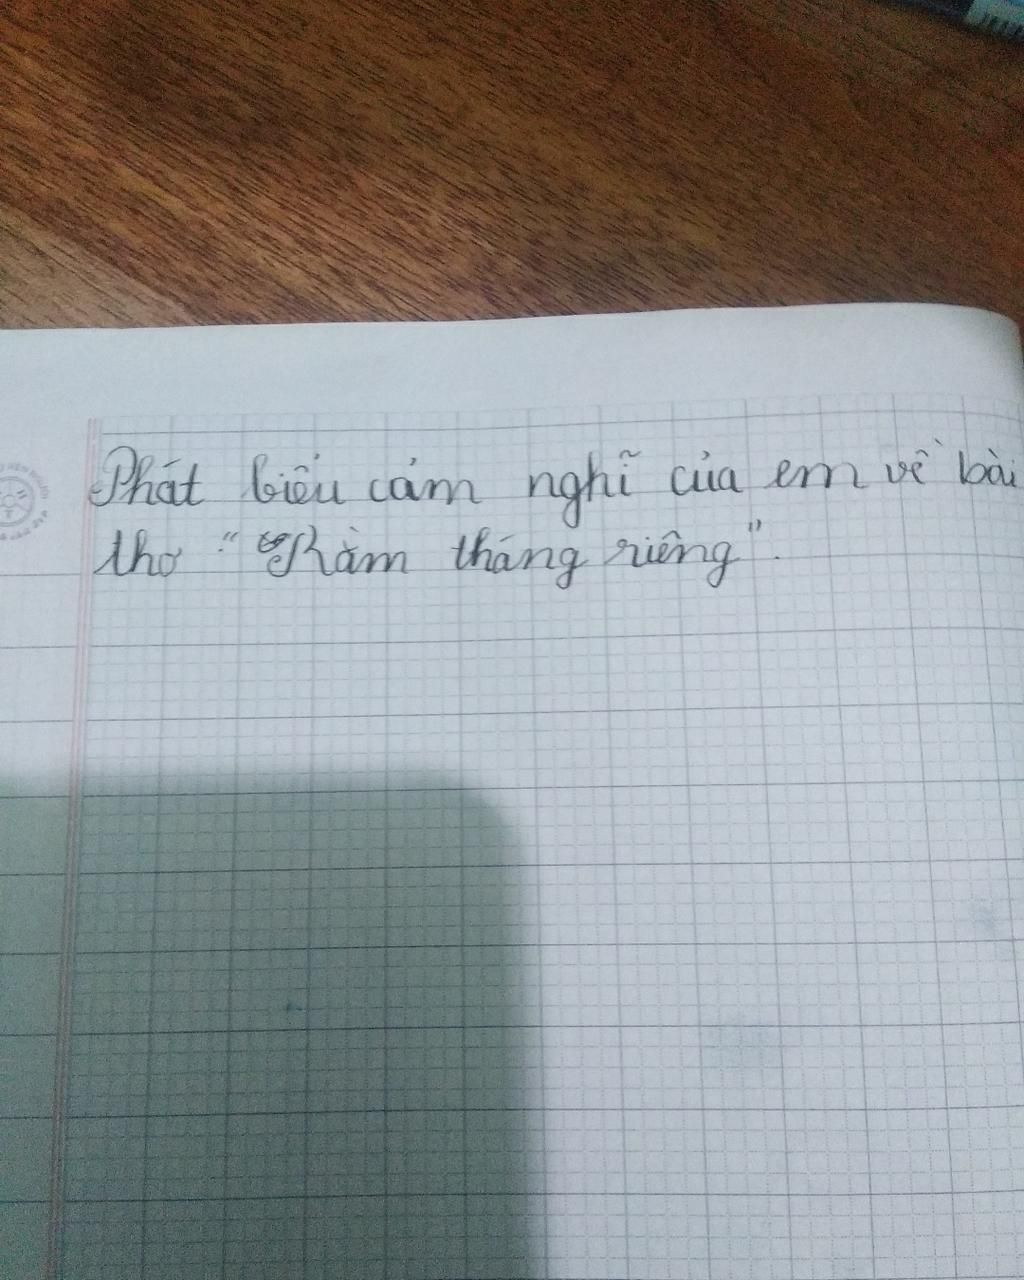 Phát biểu cảm nghĩ của em về bài
thơ " Rằm tháng riêng".